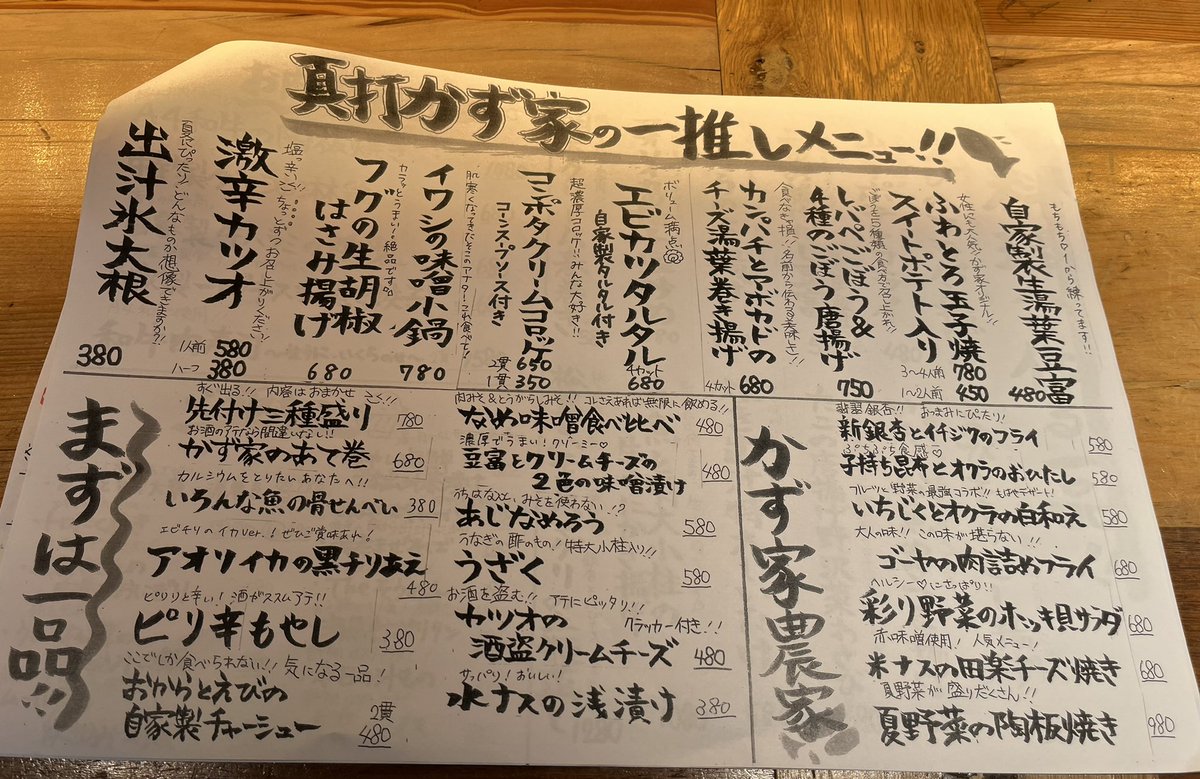 真打かず家の一推しメニュー!!
もちもち♡1から練ってます!!
自家製生湯葉豆富
480
女性にも大人気!かず家オリジナル!!
ふわとろ玉子焼
スイートポテト入り
3〜4人前 780
1〜2人前 450
レペペごぼう&
4種のごぼう唐揚げ
750
食べなきゃ損!!名前から伝わる美味さ!!
カンパチとアボカドの
チーズ湯葉巻き揚げ
4カット 680
ボリューム満点
エビカツタルタル
自家製タルタル付き
4カット
680
超濃厚コロッケ!!みんな大好き!!
コンポタクリームコロッケ
コーンスープソース付き
2貫 650
1貫 350
肌寒くなってきたそこのアナタ!これ食べて!!
イワシの味噌小鍋
780
カラッとうまい!絶品です。
フグの生胡椒
はさみ揚げ
680
塩っ辛い!ちょっとずつお召し上がりください
激辛カツオ
1人前 580
ハーフ 380
夏にぴったり!どんなものか想像できますか?!
出汁氷大根
380
まずは一品!!
すぐ出る!! 内容はおまかせ
先付け三種盛り 780
お酒の行方間違いなし!!
かず家のあて巻 680
カルシウムをとりたいあなたへ!!
いろんな魚の骨せんべい 380
エビチリのイカver.!ぜひご賞味あれ!
アオリイカの黒チリあえ
480
ピリリと辛い!酒がススムアテ!!
ピリ辛もやし 380
ここでしか食べられない!! 気になる一品!
おからとえびの
自家製チャーシュー
2貫
480
肉みそ&とうがらしみそ!! コレさえあれば無限に飲める!!
なめ味噌食べ比べ 480
濃厚でうまい!クリーミー♡
豆富とクリームチーズの
2色の味噌漬け 480
みそを使わない!?
あじなめろう 580
うなぎの酢のもの!特大小柱入り!!
うざく 580
お酒を盗む!! アテにピッタリ!!
カツオの クラッカー付き!!
酒盗クリームチーズ 480
サッパリ!おいしい!
水ナスの浅漬け 380
かず家農家!!
翡翠銀杏!! おつまみにぴたり!
新銀杏とイチジクのフライ 580
ぷちぷち食感♡
子持ち昆布とオクラのおひたし 580
フルーツと野菜の最強コラボ!!もはやデザート!
いちじくとオクラの白和え 580
大人の味!! この味が堪らない!!
ゴーヤの肉詰めフライ 680
ヘルシー♡にさっぱり!!
彩り野菜のホッキ貝サラダ 680
赤味噌使用! 人気メニュー!
米ナスの田楽チーズ焼き 680
夏野菜が盛りだくさん!!
夏野菜の陶板焼き 980